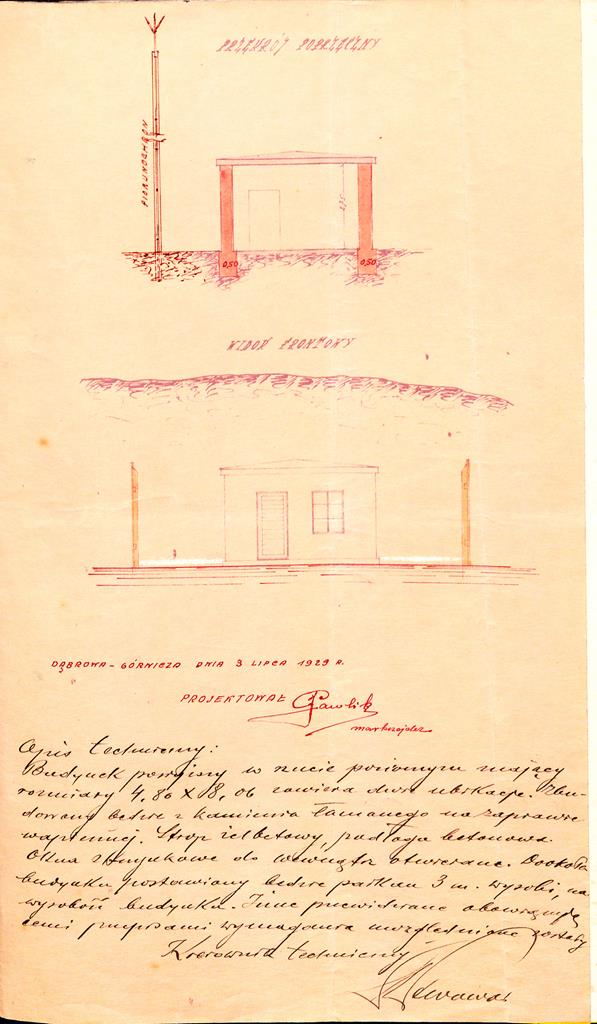 PRZEKRÓJ POPRZECZNY
PIORUNOCHRON
0,50
0,50
WIDOK FRONTOWY
DĄBROWA - GÓRNICZA DNIA 3 LIPCA 1929 R.
PROJEKTOWAŁ Pawlik
markszajder
Opis techniczny:
Budynek powyższy w rzucie poziomym mający
rozmiary 4,80 X 8,06 zawiera dwie ubikacje. Zbu-
dowany będzie z kamienia łamanego na zaprawie
wapiennej. Strop żelbetowy, podłoga betonowa.
Okna do wewnątrz otwierane. Dookoła
budynku postawiony będzie parkan 3 m. wysoki, na
wysokość budynku. Inne przewidziane obowiązują
cemi przepisami wymagania uwzględnione zostały
Kierownik techniczny